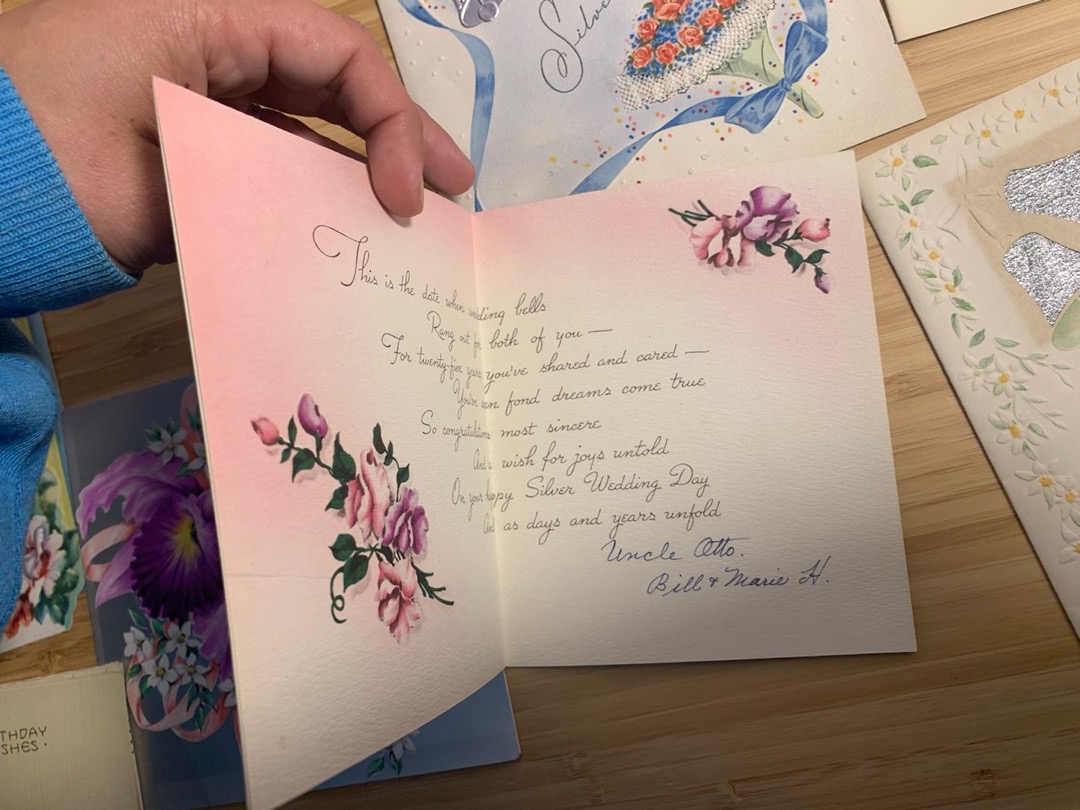 Silve
This is the date when wedding bells
Rang out for both of you —
For twenty-five years you've shared and cared —
You've seen fond dreams come true
So congratulations most sincere
And a wish for joys untold
On your happy Silver Wedding Day
And as days and years unfold
Uncle Otto.
Bill & Marie H.
THDAY
SHES.